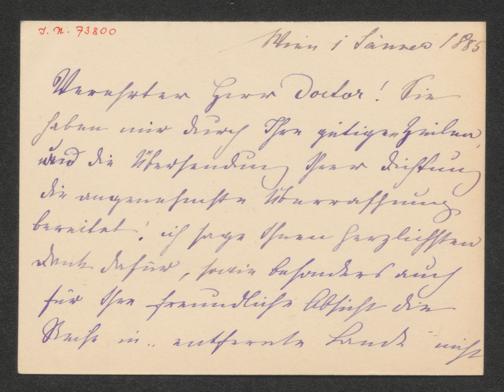 J. N. 73800
Wien 1 Jänner 1885
Verehrter Herr Doctor! Sie
haben mir durch Ihre gütigen Zeilen
und die Übersendung Ihrer Dichtung
die angenehmste Überraschung
bereitet! ich sage Ihnen herzlichsten
Dank dafür, sowie besonders auch
für Ihre freundliche Absicht die
in entfernte Lande nicht